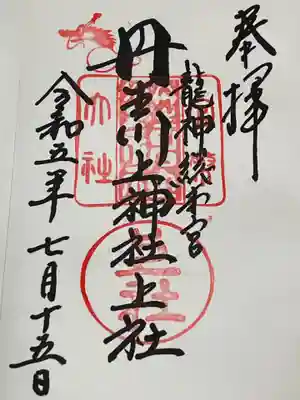 奉拝
龍神総本宮
丹生川上神社上社
令和五年七月十五日
大社